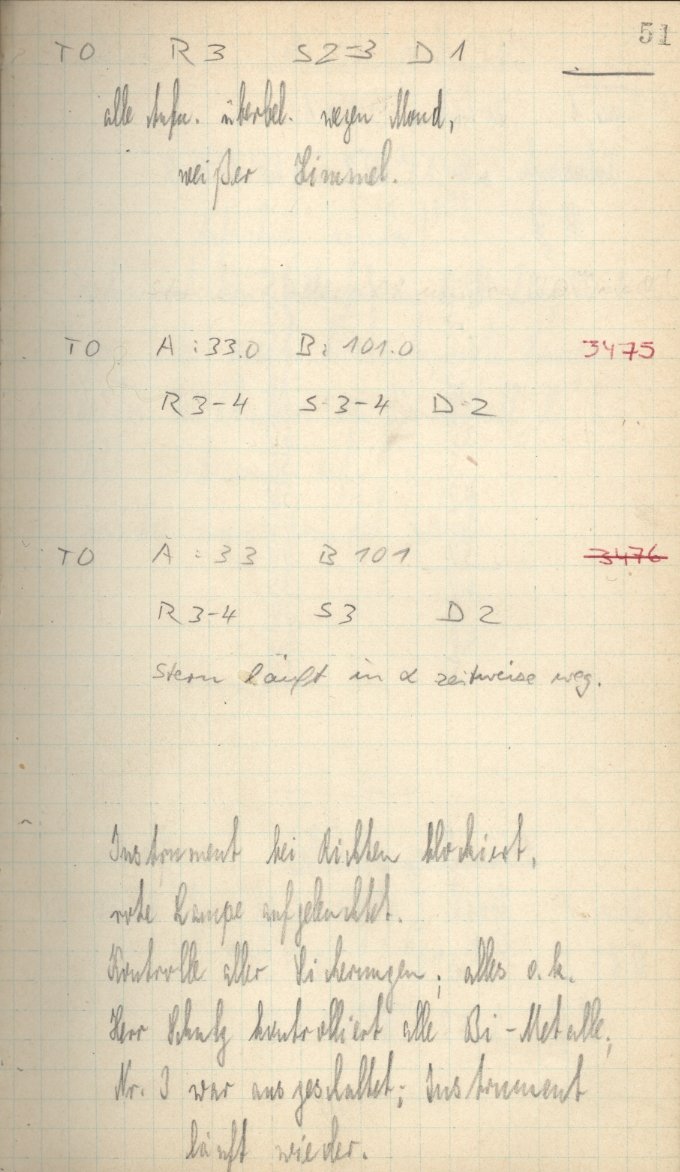 51
TO R 3 S 2-3 D 1
alle Aufn. überbel. wegen Mond,
weißer Himmel.
TO A : 33.0 B : 101.0 3475
R 3-4 S 3-4 D 2
TO A : 33 B 101 3476
R 3-4 S 3 D 2
Stern läuft in α zeitweise weg.
Instrument bei Richten blockiert,
rote Lampe aufgeleuchtet.
Kontrolle aller Sicherungen; alles o.k.
Herr Schulz kontrolliert alle Bi-Metalle;
Nr. 3 war ausgeschaltet; Instrument
läuft wieder.